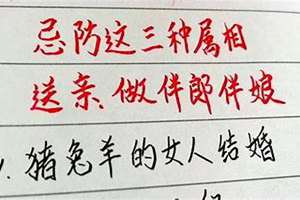 忌防这三种属相
送亲、做伴郎伴娘
猪兔羊的女人结婚